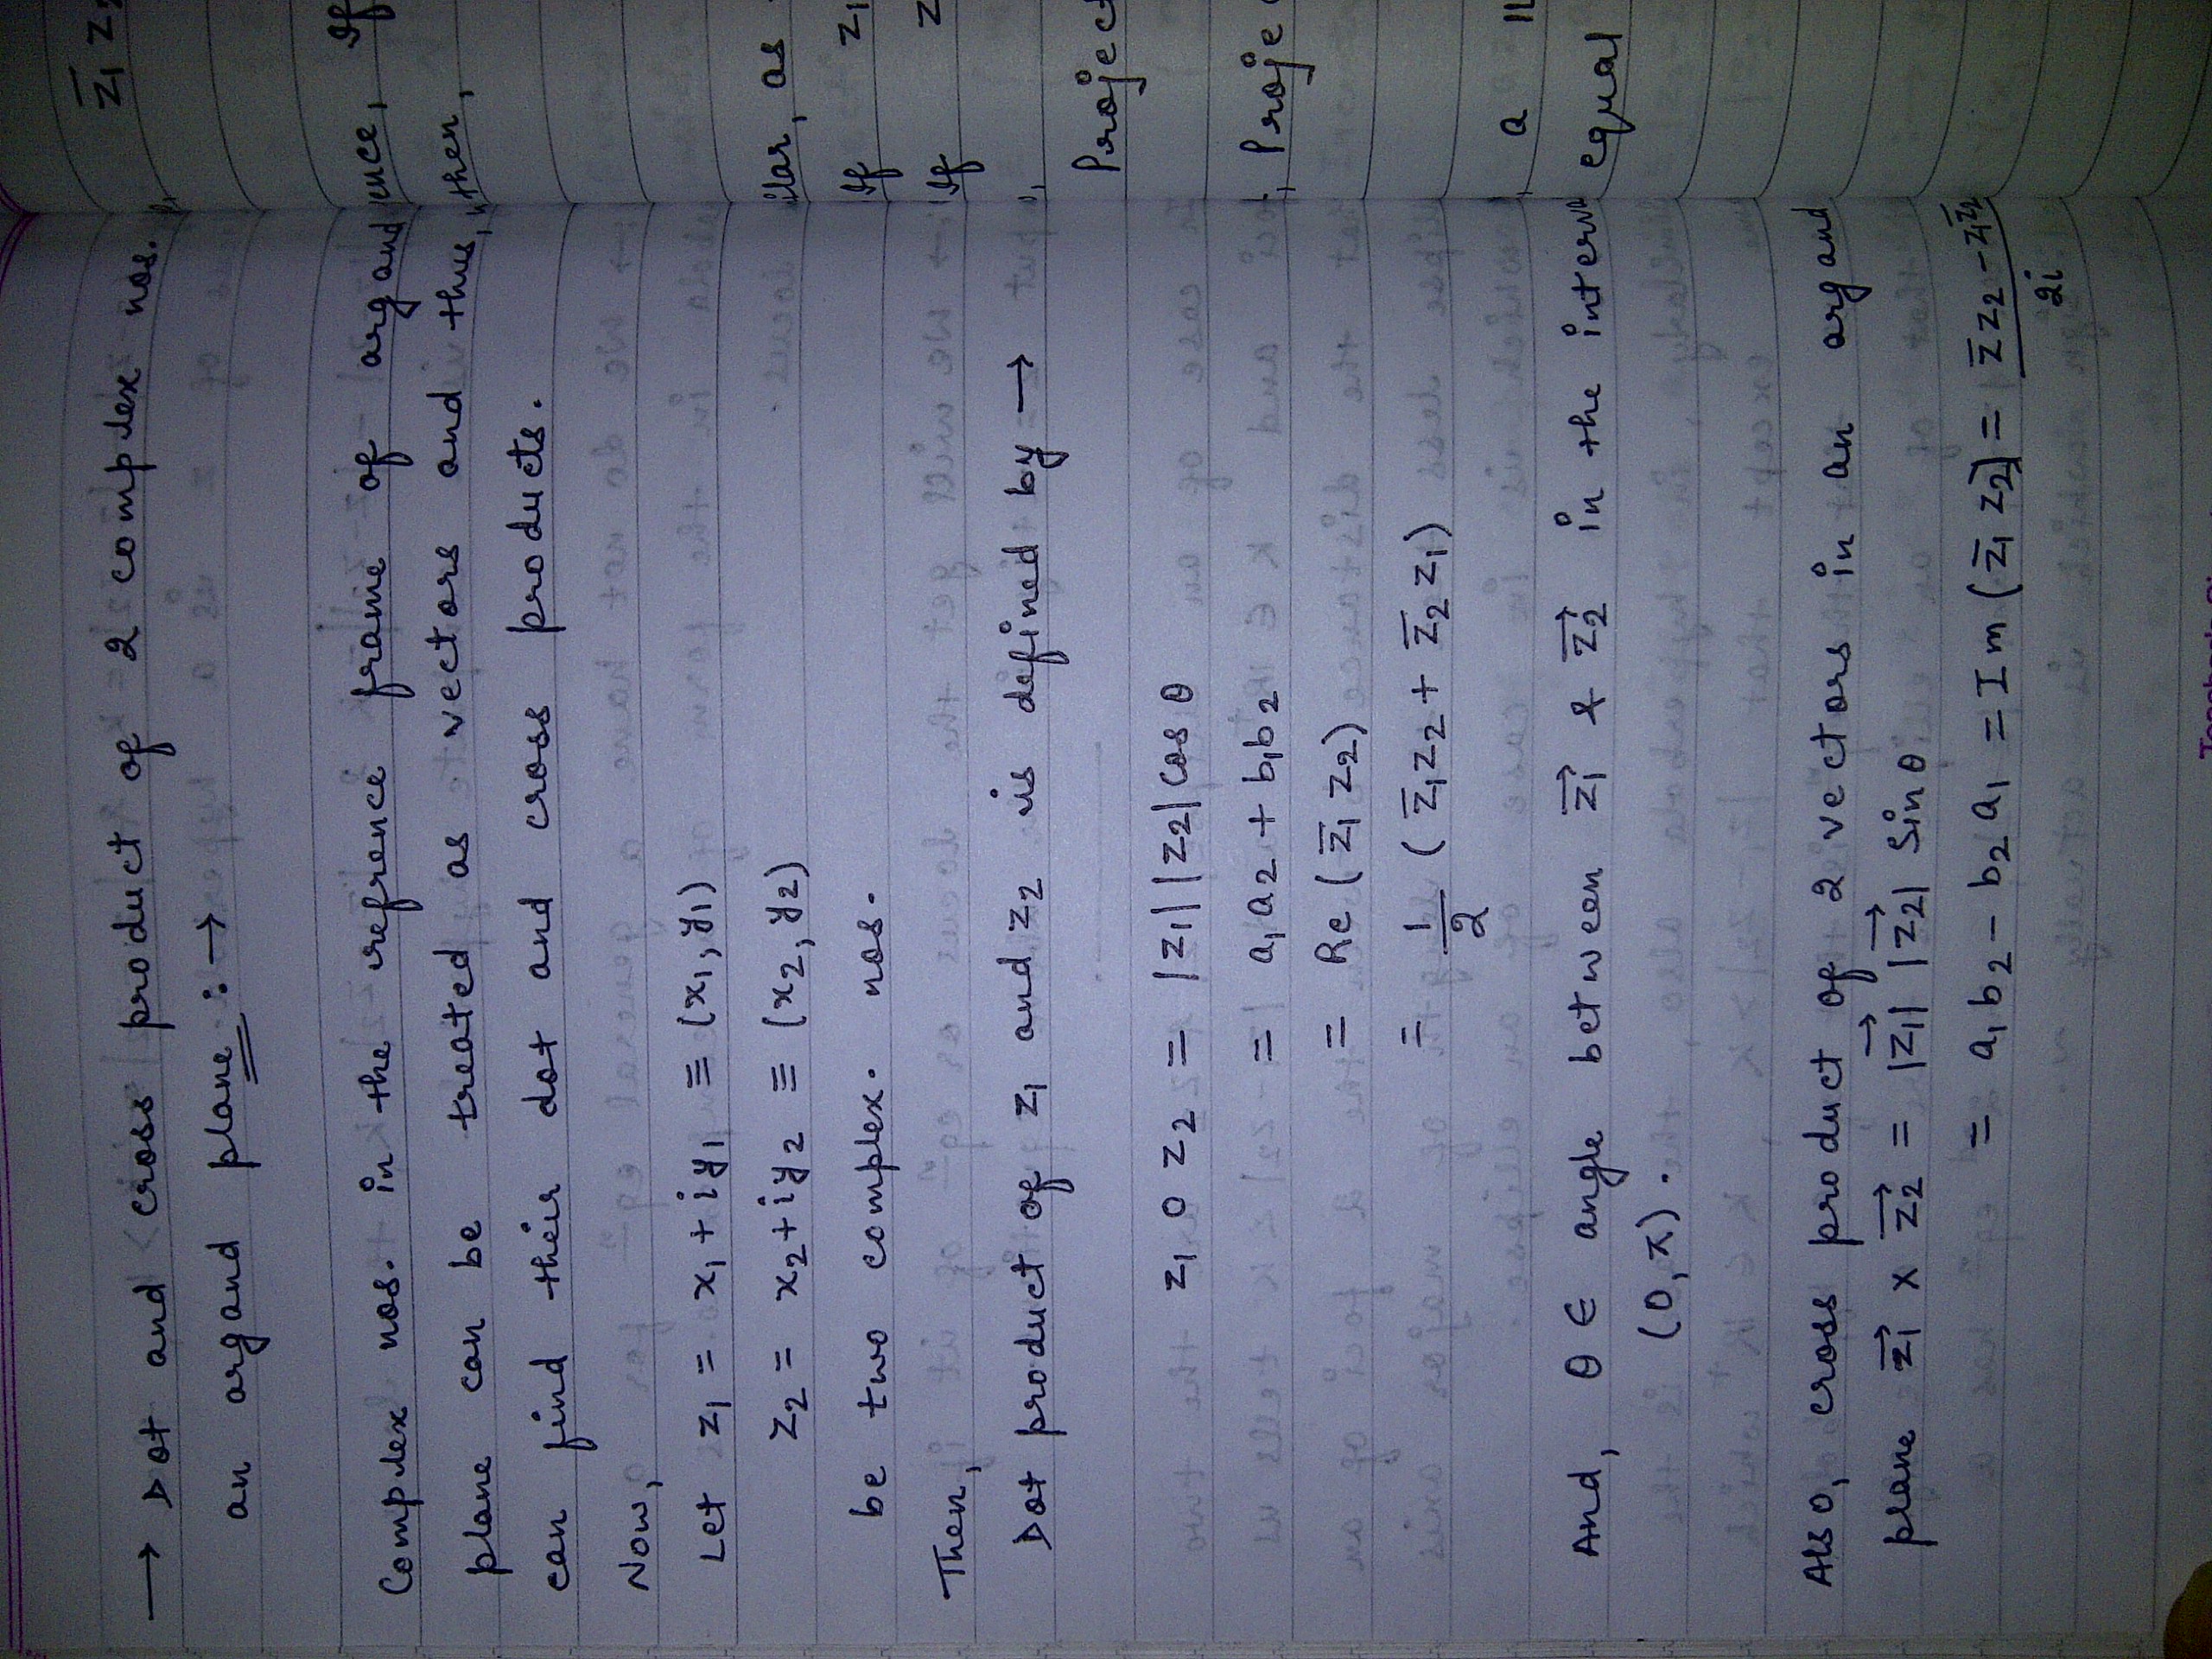 → Dot and cross product of 2 complex nos.
an argand plane :→
Complex nos. in the refrence frame of argand
plane can be treated as vectors and thus,
can find their dot and cross products.
Now,
Let z₁ = x₁ + iy₁ ≡ (x₁, y₁)
z₂ = x₂ + iy₂ ≡ (x₂, y₂)
be two complex. nos.
Then,
Dot product of z₁ and z₂ is defined by →
z₁ o z₂ = |z₁| |z₂| cos θ
= a₁a₂ + b₁b₂
= Re (z̄₁ z₂)
= 1/2 (z̄₁z₂ + z̄₂ z₁)
And, θ ∈ angle between z₁⃗ & z₂⃗ in the interva
(0, π).
Also, cross product of 2 vectors in an argand
plane z₁⃗ x z₂⃗ = |z₁⃗| |z₂⃗| Sin θ
= a₁b₂ - b₂a₁ = Im (z̄₁ z₂) = z̄z₂ - z₁z̄₂ / 2i
z̄₁ z₂
ence, If
then,
ilar, as
If z₁
If z
Project
Proje
a ||
equal